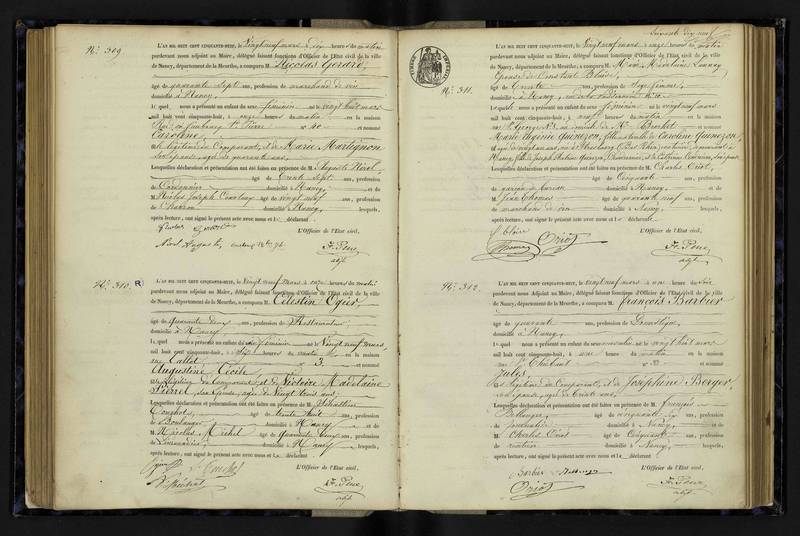 No. 309
L'AN MIL HUIT CENT CINQUANTE-HUIT, le vingt neuf mars à dix heures du matin
pardevant nous adjoint au Maire, délégué faisant fonctions d'Officier de l'Etat civil de la ville
de Nancy, département de la Meurthe, a comparu M. Nicolas Gérard,
âgé de quarante sept ans, profession de marchand de vin
domicilié à Nancy,
lequel nous a présenté un enfant du sexe féminin né le vingt huit mars
mil huit cent cinquante-huit, à onze heures du matin en la maison
Rue du faubourg St. Pierre no 40 et nommé
Caroline,
fille légitime du Comparant, et de Marie Martignon
son épouse, âgée de quarante ans,
Lesquelles déclaration et présentation ont été faites en présence de M. Auguste Noël,
âgé de trente sept ans, profession
de Cordonnier domicilié à Nancy, et de
M. Nicolas Joseph âgé de vingt neuf ans, profession
de Charron domicilié à Nancy lesquels,
après lecture, ont signé le présent acte avec nous et le déclarant
Nicolas Gérard L'Officier de l'Etat civil,
Noël Auguste
adjt
No. 310. R
L'AN MIL HUIT CENT CINQUANTE-HUIT, le vingt neuf mars à onze heures du matin
pardevant nous adjoint au Maire, délégué faisant fonctions d'Officier de l'Etat civil de la ville
de Nancy, département de la Meurthe, a comparu M. Célestin Ogier,
âgé de quarante deux ans, profession de Restaurateur
domicilié à Nancy
lequel nous a présenté un enfant du sexe féminin né le vingt neuf mars
mil huit cent cinquante-huit, à six heures du matin en la maison
rue Callot no 3 et nommé
Augustine Cécile
fille légitime du Comparant et de Victoire Madelaine
Pierrel, son épouse, âgée de vingt trois ans,
Lesquelles déclaration et présentation ont été faites en présence de M. Sébastien
âgé de trente huit ans, profession
de Boulanger domicilié à Nancy et de
M. Nicolas Michel âgé de quarante ans, profession
de domicilié à Nancy lesquels,
après lecture, ont signé le présent acte avec nous et le déclarant
L'Officier de l'Etat civil,
adjt
Soixante dix neuf
TIMBRE IMPÉRIAL
No. 311.
L'AN MIL HUIT CENT CINQUANTE-HUIT, le vingt neuf mars à onze heures du matin
pardevant nous adjoint au Maire, délégué faisant fonctions d'Officier de l'Etat civil de la ville
de Nancy, département de la Meurthe, a comparu M. Marie Madelaine Launay
Epouse de Constant Blaise,
âgé de trente ans, profession de Sage femme,
domicilié à Nancy,
lequel nous a présenté un enfant du sexe féminin né le vingt neuf mars
mil huit cent cinquante-huit, à neuf heures du matin en la maison
et nommé
Marie
Lesquelles déclaration et présentation ont été faites en présence de M. Charles Oriot,
âgé de Cinquante ans, profession
de garçon de bureau domicilié à Nancy, et de
M. Jean Thomas âgé de quarante neuf ans, profession
de marchand de vin domicilié à Nancy lesquels,
après lecture, ont signé le présent acte avec nous et le déclarant
L'Officier de l'Etat civil,
Oriot
adjt
No. 312.
L'AN MIL HUIT CENT CINQUANTE-HUIT, le vingt neuf mars à une heures du soir
pardevant nous Adjoint au Maire, délégué faisant fonctions d'Officier de l'Etat civil de la ville
de Nancy, département de la Meurthe, a comparu M. François Barbier
âgé de quarante ans, profession de Domestique,
domicilié à Nancy,
lequel nous a présenté un enfant du sexe masculin né le vingt huit mars
mil huit cent cinquante-huit, à une heures du matin en la maison
rue St. Thiébaut no et nommé
Jules,
fils légitime du Comparant, et de Joséphine Berger,
son épouse, âgée de trente ans,
Lesquelles déclaration et présentation ont été faites en présence de M. François
âgé de cinquante ans, profession
de journalier domicilié à Nancy, et de
M. Charles Oriot âgé de Cinquante ans, profession
de domicilié à Nancy, lesquels,
après lecture, ont signé le présent acte avec nous et le déclarant
Barbier L'Officier de l'Etat civil,
Oriot
adjt